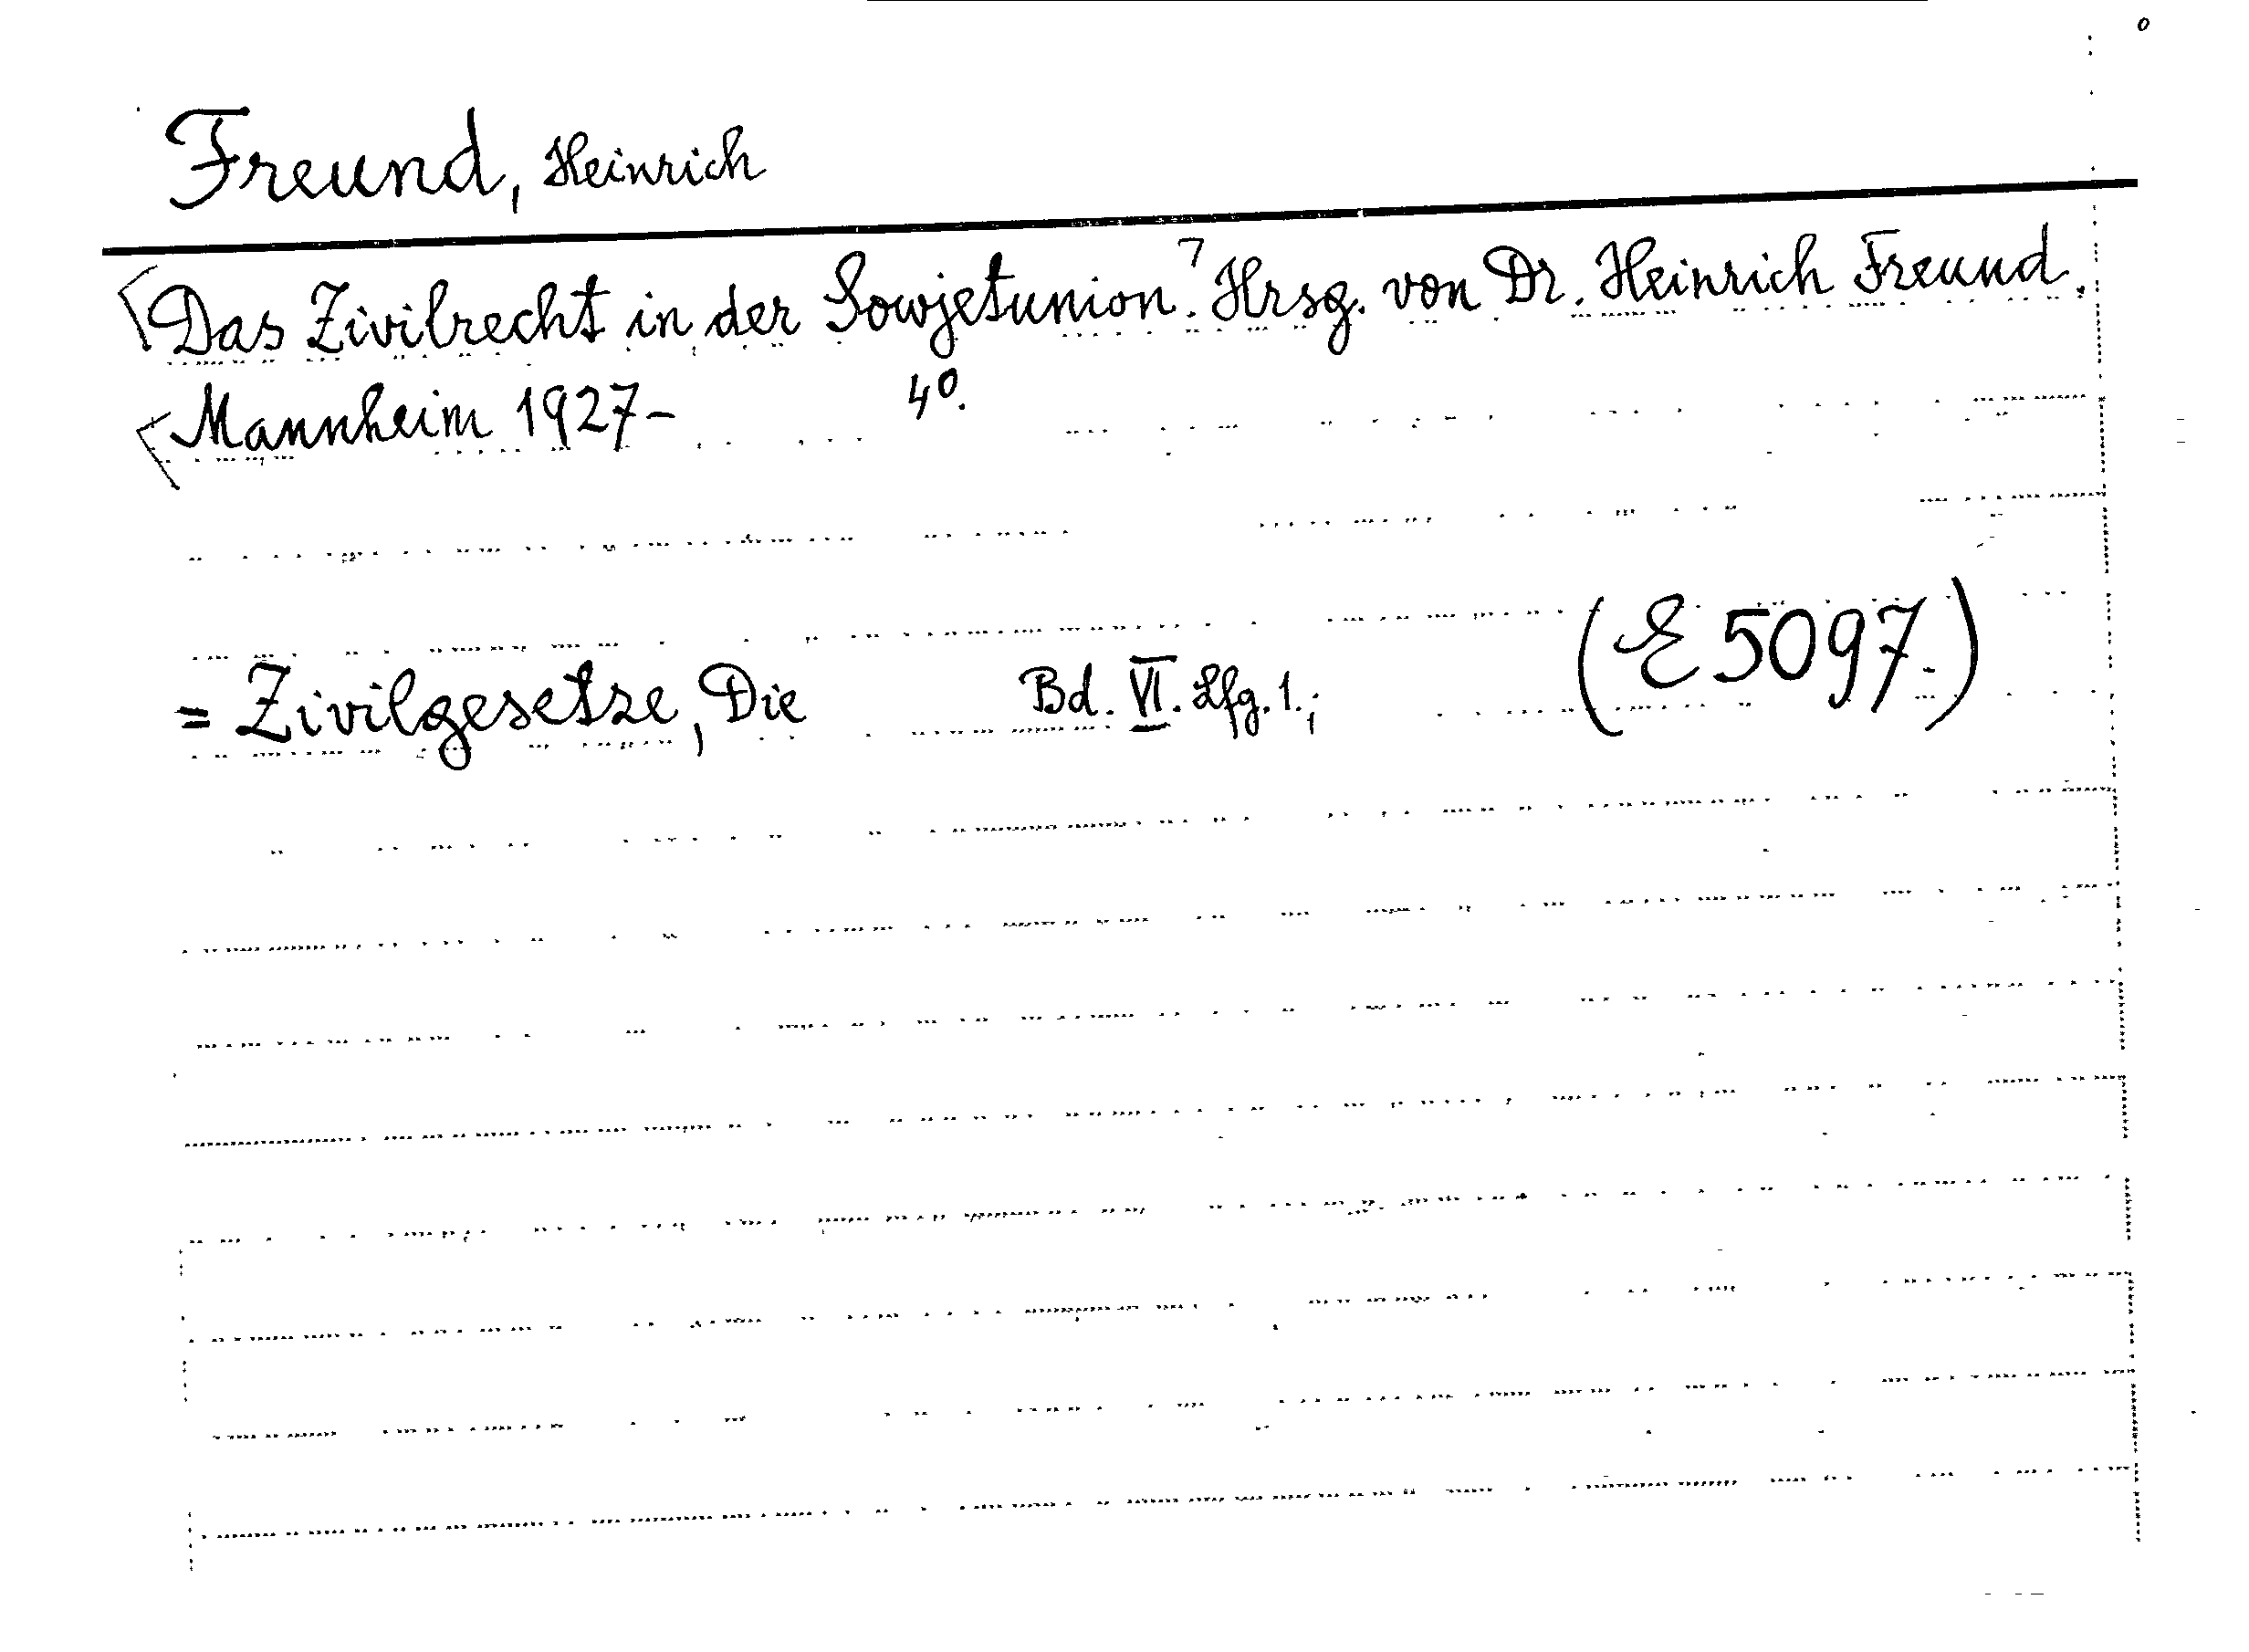 Freund, Heinrich
[Das Zivilrecht in der Sowjetunion.⁊ Hrsg. von Dr. Heinrich Freund.
[Mannheim 1927- 4º.
= Zivilgesetze, Die Bd. VI. Lfg. 1.; (E 5097.)